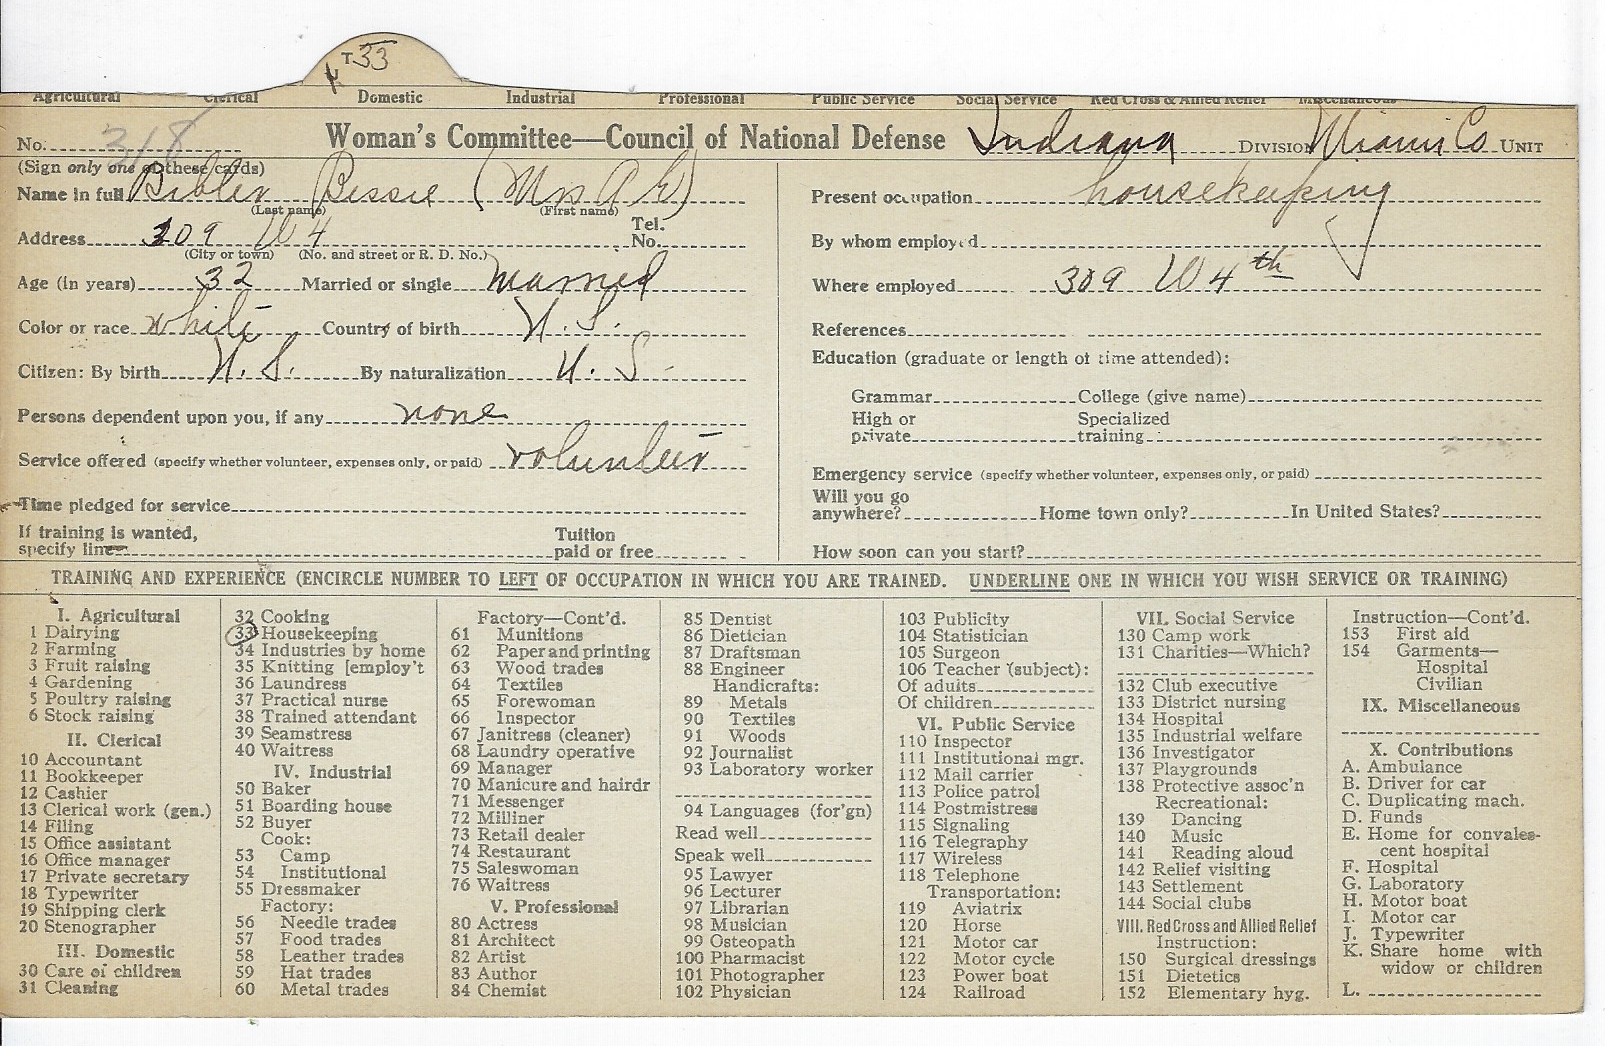 T33
Agricultural Clerical Domestic Industrial Professional Public Service Social Service Red Cross & Allied Relief Miscellaneous
No. 318 Woman's Committee—Council of National Defense Indiana DIVISION Miami Co UNIT
(Sign only one of these cards)
Name in full Bibler Bessie (Mrs A E)
(Last name) (First name)
Address 309 W 4 Tel. No.
(City or town) (No. and street or R. D. No.)
Age (in years) 32 Married or single married
Color or race white Country of birth U. S.
Citizen: By birth U. S. By naturalization U. S.
Persons dependent upon you, if any none
Service offered (specify whether volunteer, expenses only, or paid) volunteer
Time pledged for service
If training is wanted,
specify line Tuition
paid or free
Present occupation housekeeping
By whom employed
Where employed 309 W 4th
References
Education (graduate or length of time attended):
Grammar College (give name)
High or
private Specialized
training
Emergency service (specify whether volunteer, expenses only, or paid)
Will you go
anywhere? Home town only? In United States?
How soon can you start?
TRAINING AND EXPERIENCE (ENCIRCLE NUMBER TO LEFT OF OCCUPATION IN WHICH YOU ARE TRAINED. UNDERLINE ONE IN WHICH YOU WISH SERVICE OR TRAINING)
I. Agricultural
1 Dairying
2 Farming
3 Fruit raising
4 Gardening
5 Poultry raising
6 Stock raising
II. Clerical
10 Accountant
11 Bookkeeper
12 Cashier
13 Clerical work (gen.)
14 Filing
15 Office assistant
16 Office manager
17 Private secretary
18 Typewriter
19 Shipping clerk
20 Stenographer
III. Domestic
30 Care of children
31 Cleaning
32 Cooking
33 Housekeeping
34 Industries by home
35 Knitting [employ't
36 Laundress
37 Practical nurse
38 Trained attendant
39 Seamstress
40 Waitress
IV. Industrial
50 Baker
51 Boarding house
52 Buyer
Cook:
53 Camp
54 Institutional
55 Dressmaker
Factory:
56 Needle trades
57 Food trades
58 Leather trades
59 Hat trades
60 Metal trades
Factory—Cont'd.
61 Munitions
62 Paper and printing
63 Wood trades
64 Textiles
65 Forewoman
66 Inspector
67 Janitress (cleaner)
68 Laundry operative
69 Manager
70 Manicure and hairdr
71 Messenger
72 Milliner
73 Retail dealer
74 Restaurant
75 Saleswoman
76 Waitress
V. Professional
80 Actress
81 Architect
82 Artist
83 Author
84 Chemist
85 Dentist
86 Dietician
87 Draftsman
88 Engineer
Handicrafts:
89 Metals
90 Textiles
91 Woods
92 Journalist
93 Laboratory worker
94 Languages (for'gn)
Read well
Speak well
95 Lawyer
96 Lecturer
97 Librarian
98 Musician
99 Osteopath
100 Pharmacist
101 Photographer
102 Physician
103 Publicity
104 Statistician
105 Surgeon
106 Teacher (subject):
Of adults
Of children
VI. Public Service
110 Inspector
111 Institutional mgr.
112 Mail carrier
113 Police patrol
114 Postmistress
115 Signaling
116 Telegraphy
117 Wireless
118 Telephone
Transportation:
119 Aviatrix
120 Horse
121 Motor car
122 Motor cycle
123 Power boat
124 Railroad
VII. Social Service
130 Camp work
131 Charities—Which?
132 Club executive
133 District nursing
134 Hospital
135 Industrial welfare
136 Investigator
137 Playgrounds
138 Protective assoc'n
Recreational:
139 Dancing
140 Music
141 Reading aloud
142 Relief visiting
143 Settlement
144 Social clubs
VIII. Red Cross and Allied Relief
Instruction:
150 Surgical dressings
151 Dietetics
152 Elementary hyg.
Instruction—Cont'd.
153 First aid
154 Garments—
Hospital
Civilian
IX. Miscellaneous
X. Contributions
A. Ambulance
B. Driver for car
C. Duplicating mach.
D. Funds
E. Home for convales-
cent hospital
F. Hospital
G. Laboratory
H. Motor boat
I. Motor car
J. Typewriter
K. Share home with
widow or children
L.